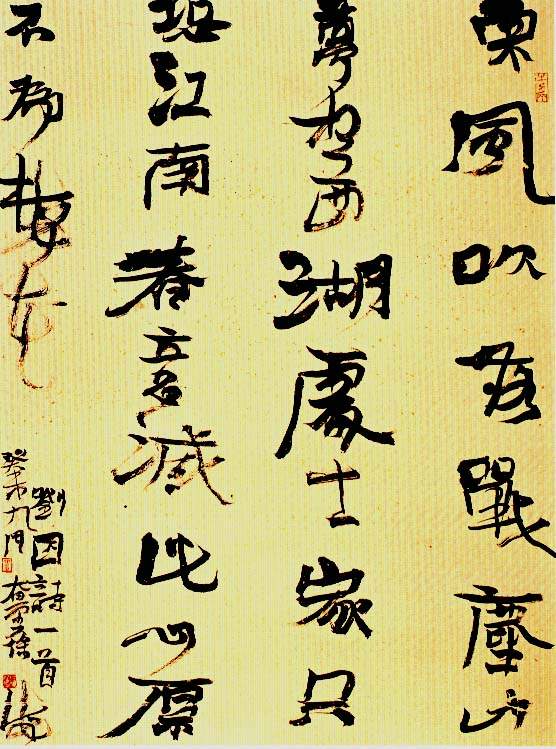 東風吹落戰塵沙
夢想西湖處士家只
恐江南春意減此心原
不為梅花
劉因詩一首
癸未九月